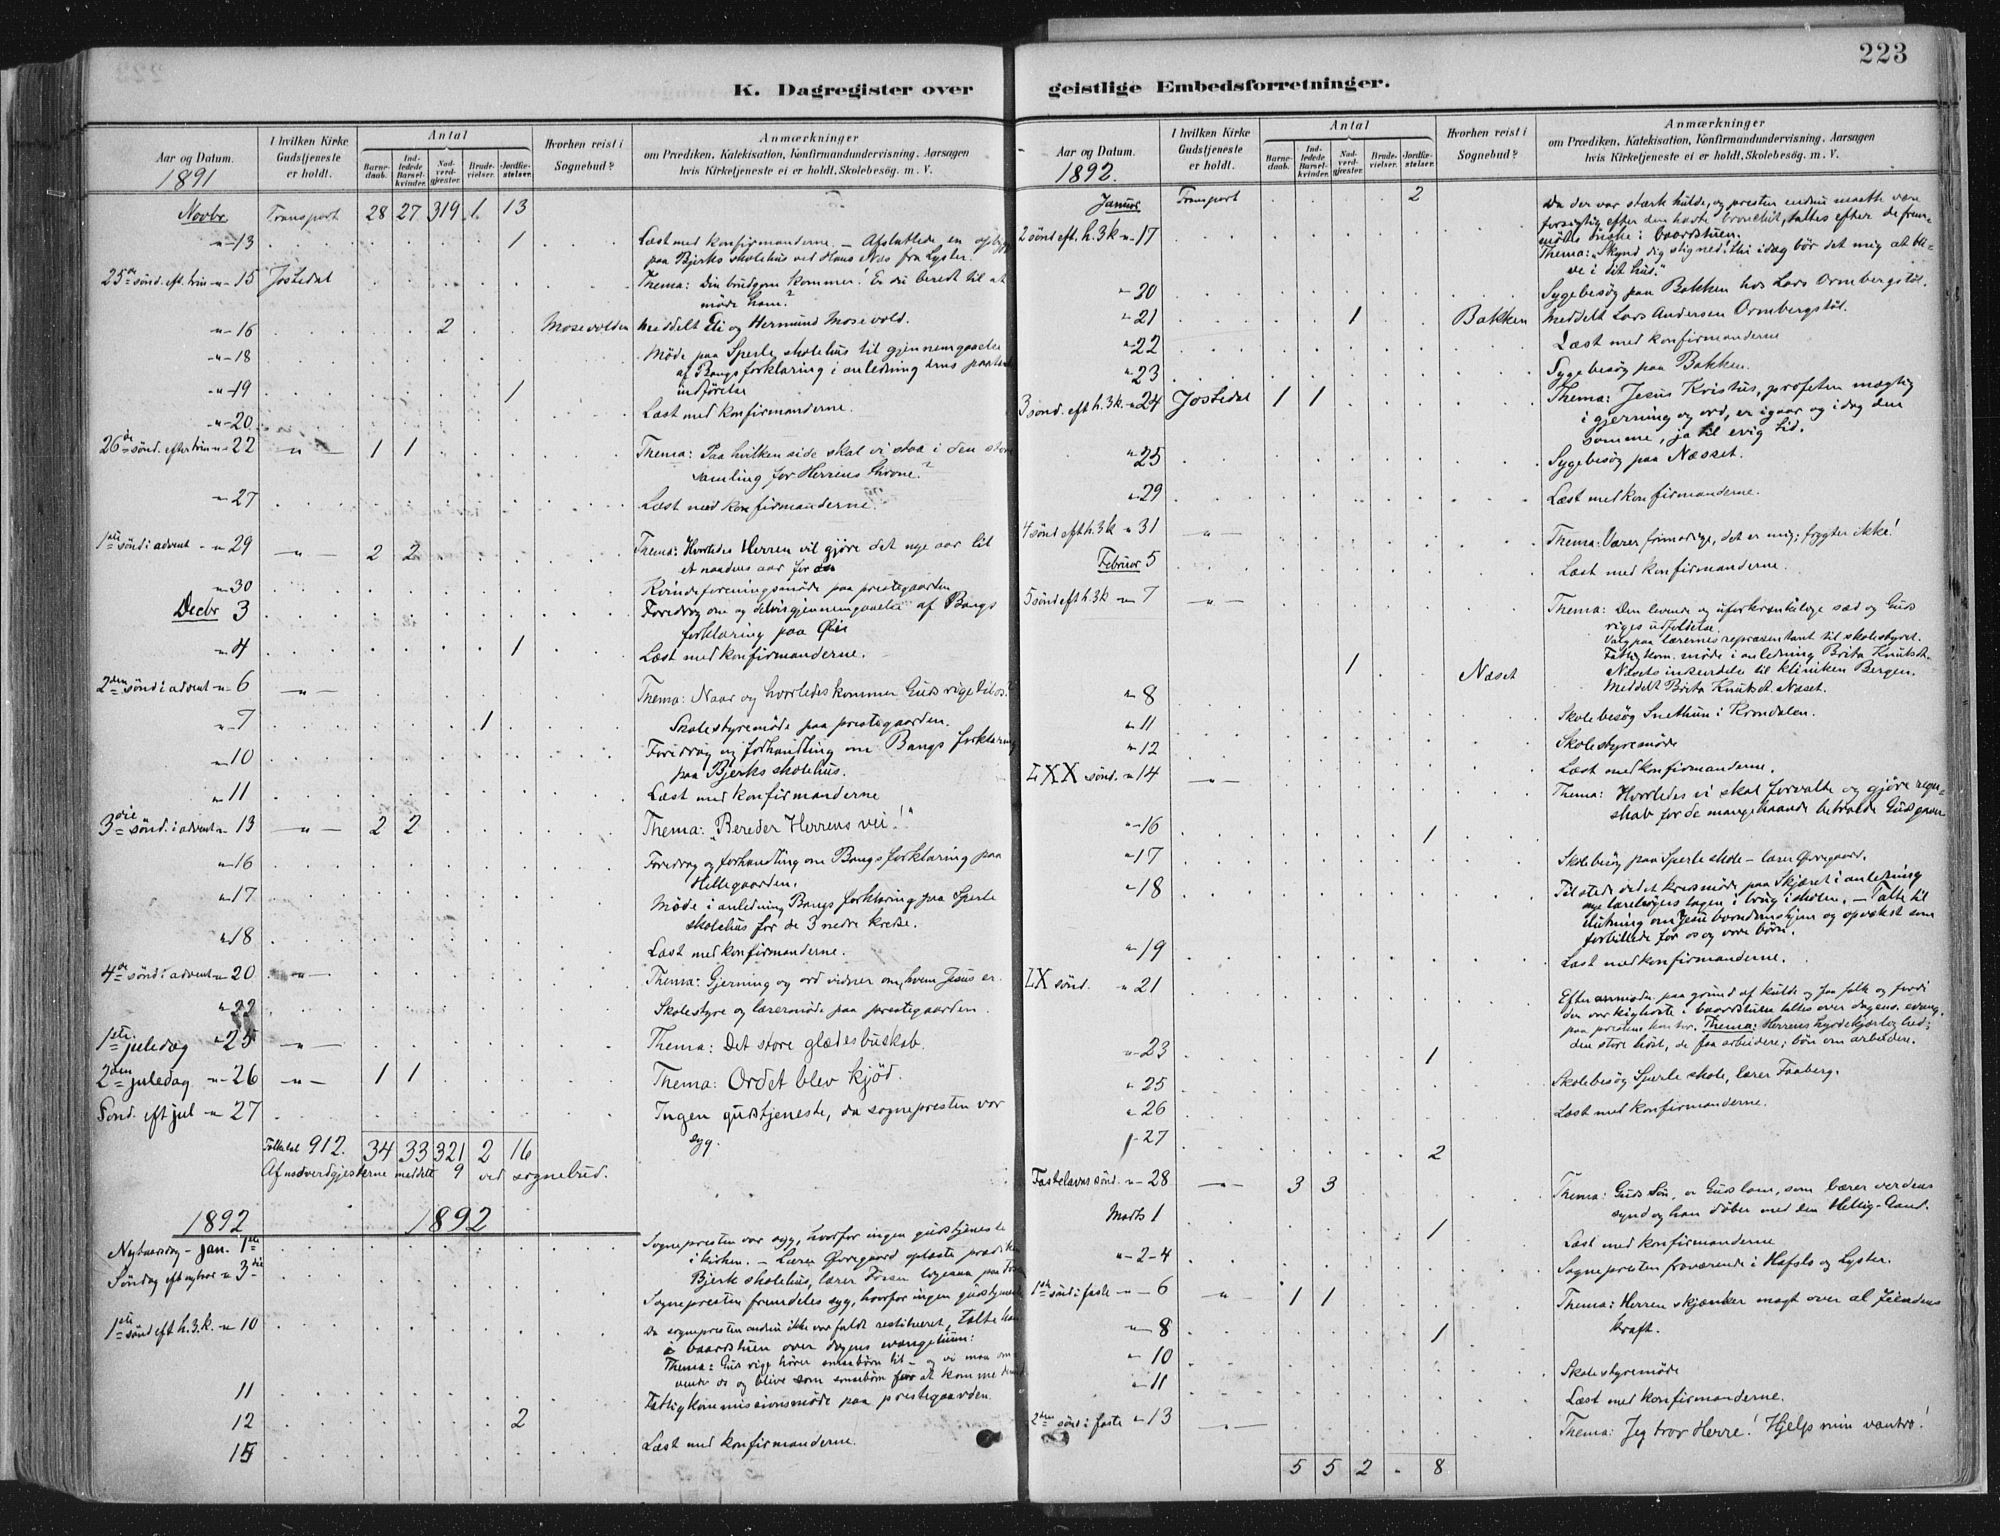 223
K. Dagregister over geistlige Embedsforretninger.
Aar og Datum. 1891
I hvilken Kirke Gudstjeneste er holdt.
Antal
Barnedaab. Indledede Barselkvinder. Nadverdgjester. Brudevielser. Jordfæstelser.
Hvorhen reist i Sognebud?
Anmærkninger
om Prædiken, Katekisation, Konfirmandundervisning, Aarsagen
hvis Kirketjeneste ei er holdt, Skolebesøg. m. V.
Novbr. Transport 28 27 319 1 13
"-13 1 Læst med konfirmanderne. – Afsluttede en
paa Bjerks skolehus ved Hans Næs fra Lyster.
25de sønd. eft. trin "-15 Jostedal Thema: Din brudgom kommer! Er du beredt til at
møde ham?
"-16 2 Mosevolden Meddelt Eli og Hermund Mosevold.
"-18 Møde paa Sperle skolehus til gjennemgaaelse
af Bangs forklaring i anledning dens
indførelse
"-19 1
"-20 Læst med konfirmanderne.
26de sønd. efter trin "-22 -"- 1 1 Thema: Paa hvilken side skal vi staa i den store
samling for Herrens throne?
"-27 Læst med konfirmanderne.
1ste sønd i advent "-29 -"- 2 2 Thema: Hvorledes Herren vil gjøre det nye aar til
et naadens aar for os
"-30 Kvindeforeningsmøde paa prestegaarden
Decbr 3 Foredrag om og delvis gjennemgaaelse af Bangs
forklaring paa
"-4 1 Læst med konfirmanderne.
2den sønd i advent "-6 -"- Thema: Naar og hvorledes kommer Guds rige til os?
"-7 1 Skolestyremøde paa prestegaarden.
"-10 Foredrag og forhandling om Bangs forklaring
paa Bjerks skolehus.
"-11 Læst med konfirmanderne
3die sønd. i advent "-13 -"- 2 2 Thema: "Bereder Herrens vei!"
"-16 Foredrag og forhandling om Bangs forklaring paa
Hellegaarden.
"-17 Møde i anledning Bangs forklaring paa Sperle
skolehus for de 3 nedre kredse.
"-18 Læst med konfirmanderne.
4de sønd i advent "-20 -"- Thema: Gjerning og ord vidner om, hvem Jesus er.
"-22 Skolestyre og lærermøde paa prestegaarden.
1ste juledag "-25 -"- Thema: Det store glædesbudskab.
2den juledag "-26 -"- 1 1 Thema: Ordet blev kjød.
Sønd. eft jul "-27 Ingen gudstjeneste, da sognepresten var
syg.
Folketal 912. 34 33 321 2 16
Af nadverdgjesterne meddelt 9 ved sognebud.
1892 1892
Nytaarsdag - jan. 1ste Sognepresten var syg, hvorfor ingen gudstjeneste
i kirken. – Lærer Øvregaard oplæste prædiken
Søndag eft nytaar "3die Bjerk skolehus, lærer
Sognepresten fremdeles syg, hvorfor ingen gudstjeneste
1ste sønd eft h. 3. k. "-10 Da sognepresten endnu ikke var fuldt restitueret, talte han
i baarstuen over dagens evangelium:
Thema: Guds rige hører smaabørn til – og vi maa om-
vende os og blive som smaabørn for at komme
11 Fattigkommissionsmøde paa prestegaarden.
12 2
15 Læst med konfirmanderne.
Aar og Datum. 1892.
I hvilken Kirke Gudstjeneste er holdt.
Antal
Barnedaab. Indledede Barselkvinder. Nadverdgjester. Brudevielser. Jordfæstelser.
Hvorhen reist i Sognebud?
Anmærkninger
om Prædiken, Katekisation, Konfirmandundervisning, Aarsagen
hvis Kirketjeneste ei er holdt, Skolebesøg. m. V.
Januar Transport 2 Da der var stærk kulde, og presten endnu maatte være
forsigtig efter den havte bronchit, taltes efter de frem-
mødtes ønske i baarstuen.
2 sønd eft. h. 3k "-17 Thema: "Skynd dig stig ned! thi idag bør det mig at bli-
ve i dit hus."
"-20 Sygebesøg paa Bakken hos Lars Ormbergstøl.
"-21 1 Bakken Meddelt Lars Andersen Ormbergstøl.
"-22 Læst med konfirmanderne
"-23 Sygebesøg paa Bakken.
3 sønd. eft h. 3k. "-24 Jostedal 1 1 Thema: Jesus Kristus, profeten mægtig
i gjerning og ord, er igaar og idag den
samme, ja til evig tid.
"-25 Sygebesøg paa Næsset.
"-29 Læst med konfirmanderne.
4 sønd eft h. 3k "-31 -"- Thema: Værer frimodige, det er mig; frygter ikke!
Februar 5 Læst med konfirmanderne.
5 sønd eft h. 3k "-7 -"- Thema: Den levende og uforkrænkelige sæd og Guds
riges udfoldelse.
Valg paa lærernes repræsentant til skolestyret.
Fattigkom. møde i anledning Brita Knutsd.
Næsets indsendelse til kliniken Bergen.
"-8 1 Næset Meddelt Brita Knutsd. Næset.
"-11 Skolebesøg Snethun i Krondalen.
"-12 Skolestyremøde
Læst med konfirmanderne.
LXX sønd. "-14 -"- Thema: Hvorledes vi skal forvalte og gjøre regn-
skab for de mangehaande betroede Guds gaver
"-16 1
"-17 Skolebesøg paa Sperle skole – lærer Øvregaard.
"-18 Tilstede ved et kredsmøde paa Skjæret i anledning
nye lærebøgers tagen i brug i skolen. – Talte til
slutning om Jesu barndomshjem og opvækst som
forbillede for os og vore børn.
"-19 Læst med konfirmanderne.
LX sønd. "-21 Efter anmodn. paa grund af kulde og faa folk og fordi
der var kighoste i baarstuen taltes over dagens evang.
paa prestens kontor. Thema: Herrens hyrdekjærlighed:
den store høst, de faa arbeidere; bøn om arbeidere.
"-23 1
"-25 Skolebesøg Sperle skole, lærer Faaberg.
"-26 Læst med konfirmanderne.
"-27 2
Fastelavns sønd. "-28 -"- 3 3 Thema: Guds Søn, er Guds lam, som bærer verdens
synd og han døber med den Hellig-Aand.
Marts 1 1 Læst med konfirmanderne
"-2-4 Sognepresten fraværende i Hafslo og Lyster.
1ste sønd i faste "-6 -"- 1 1 Thema: Herren skjænker magt over al fiendens
kraft.
"-8 1
"-10 Skolestyremøde
"-11 Læst med konfirmanderne.
2den sønd i faste "-13 -"- Thema: Jeg tror Herre! Hjelp min vantro!
5 5 2 - 8